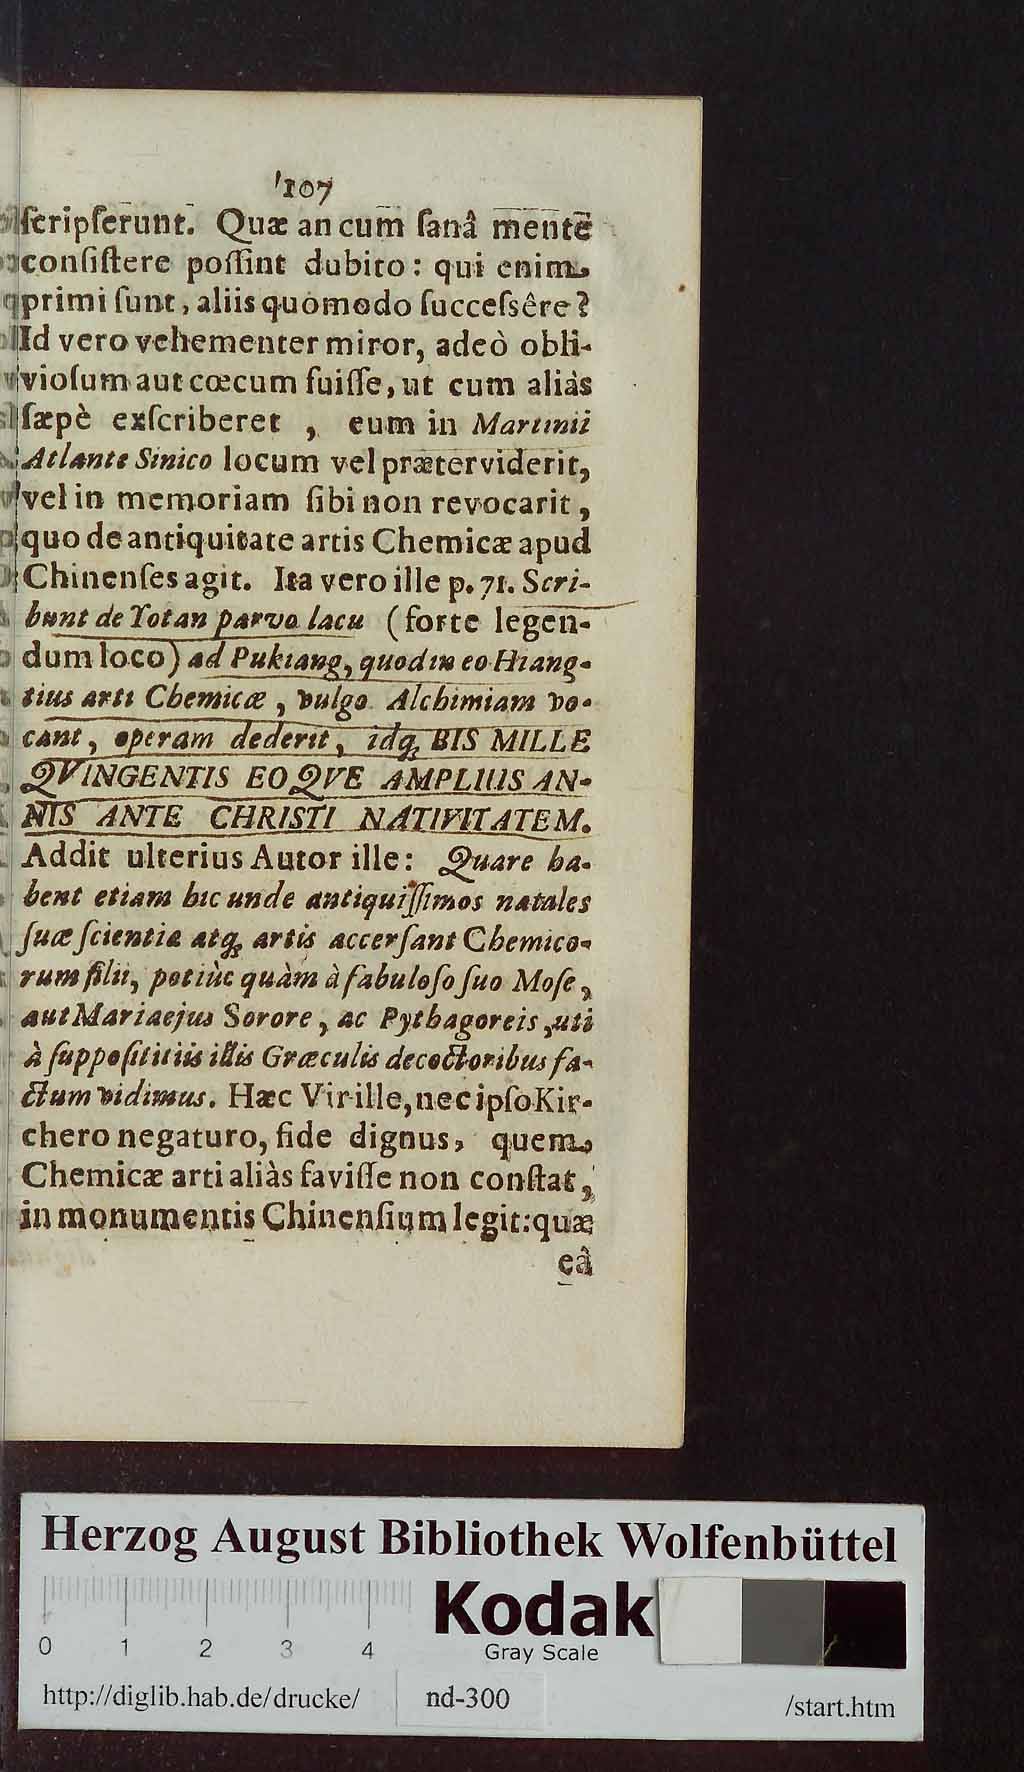 107
ſcripſerunt. Quæ an cum ſanâ mente
conſiſtere poſſint dubito: qui enim
primi ſunt, aliis quomodo ſucceſsêre?
Id vero vehementer miror, adeò obli-
vioſum aut cœcum fuiſſe, ut cum aliàs
ſæpè exſcriberet , eum in Martinii
Atlante Sinico locum vel præterviderit,
vel in memoriam ſibi non revocarit,
quo de antiquitate artis Chemicæ apud
Chinenſes agit. Ita vero ille p. 71. Scri-
bunt de Yotan parvo lacu (forte legen-
dum loco) ad Pukiang, quod in eo Hiang-
tius arti Chemicæ, vulgo Alchimiam vo-
cant, operam dederit, idq; BIS MILLE
QVINGENTIS EOQVE AMPLIUS AN-
NIS ANTE CHRISTI NATIVITATEM.
Addit ulterius Autor ille: Quare ha-
bent etiam hic unde antiquiſſimos natales
ſuæ ſcientia atq; artis accerſant Chemico-
rum filii, potiùc quàm à fabuloſo ſuo Moſe,
aut Maria ejus Sorore, ac Pythagoreis, uti
à ſuppoſititiis illis Græculis decoctoribus fa-
ctum vidimus. Hæc Vir ille, nec ipſo Kir-
chero negaturo, fide dignus, quem
Chemicæ arti aliàs faviſſe non conſtat,
in monumentis Chinenſium legit: quæ
eâ
Herzog August Bibliothek Wolfenbüttel
0 1 2 3 4
Kodak
Gray Scale
http://diglib.hab.de/drucke/ nd-300 /start.htm